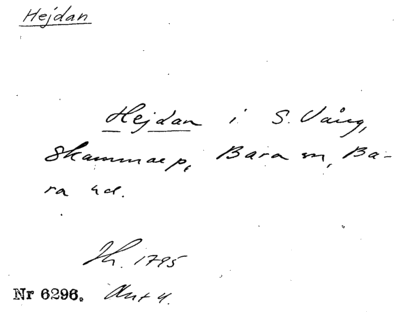 Hejdan
Hejdan i S. Vång,
Skammaep, Bara m, Ba-
ra hd.
Jh. 1795
Nr 6296. Ant 4.